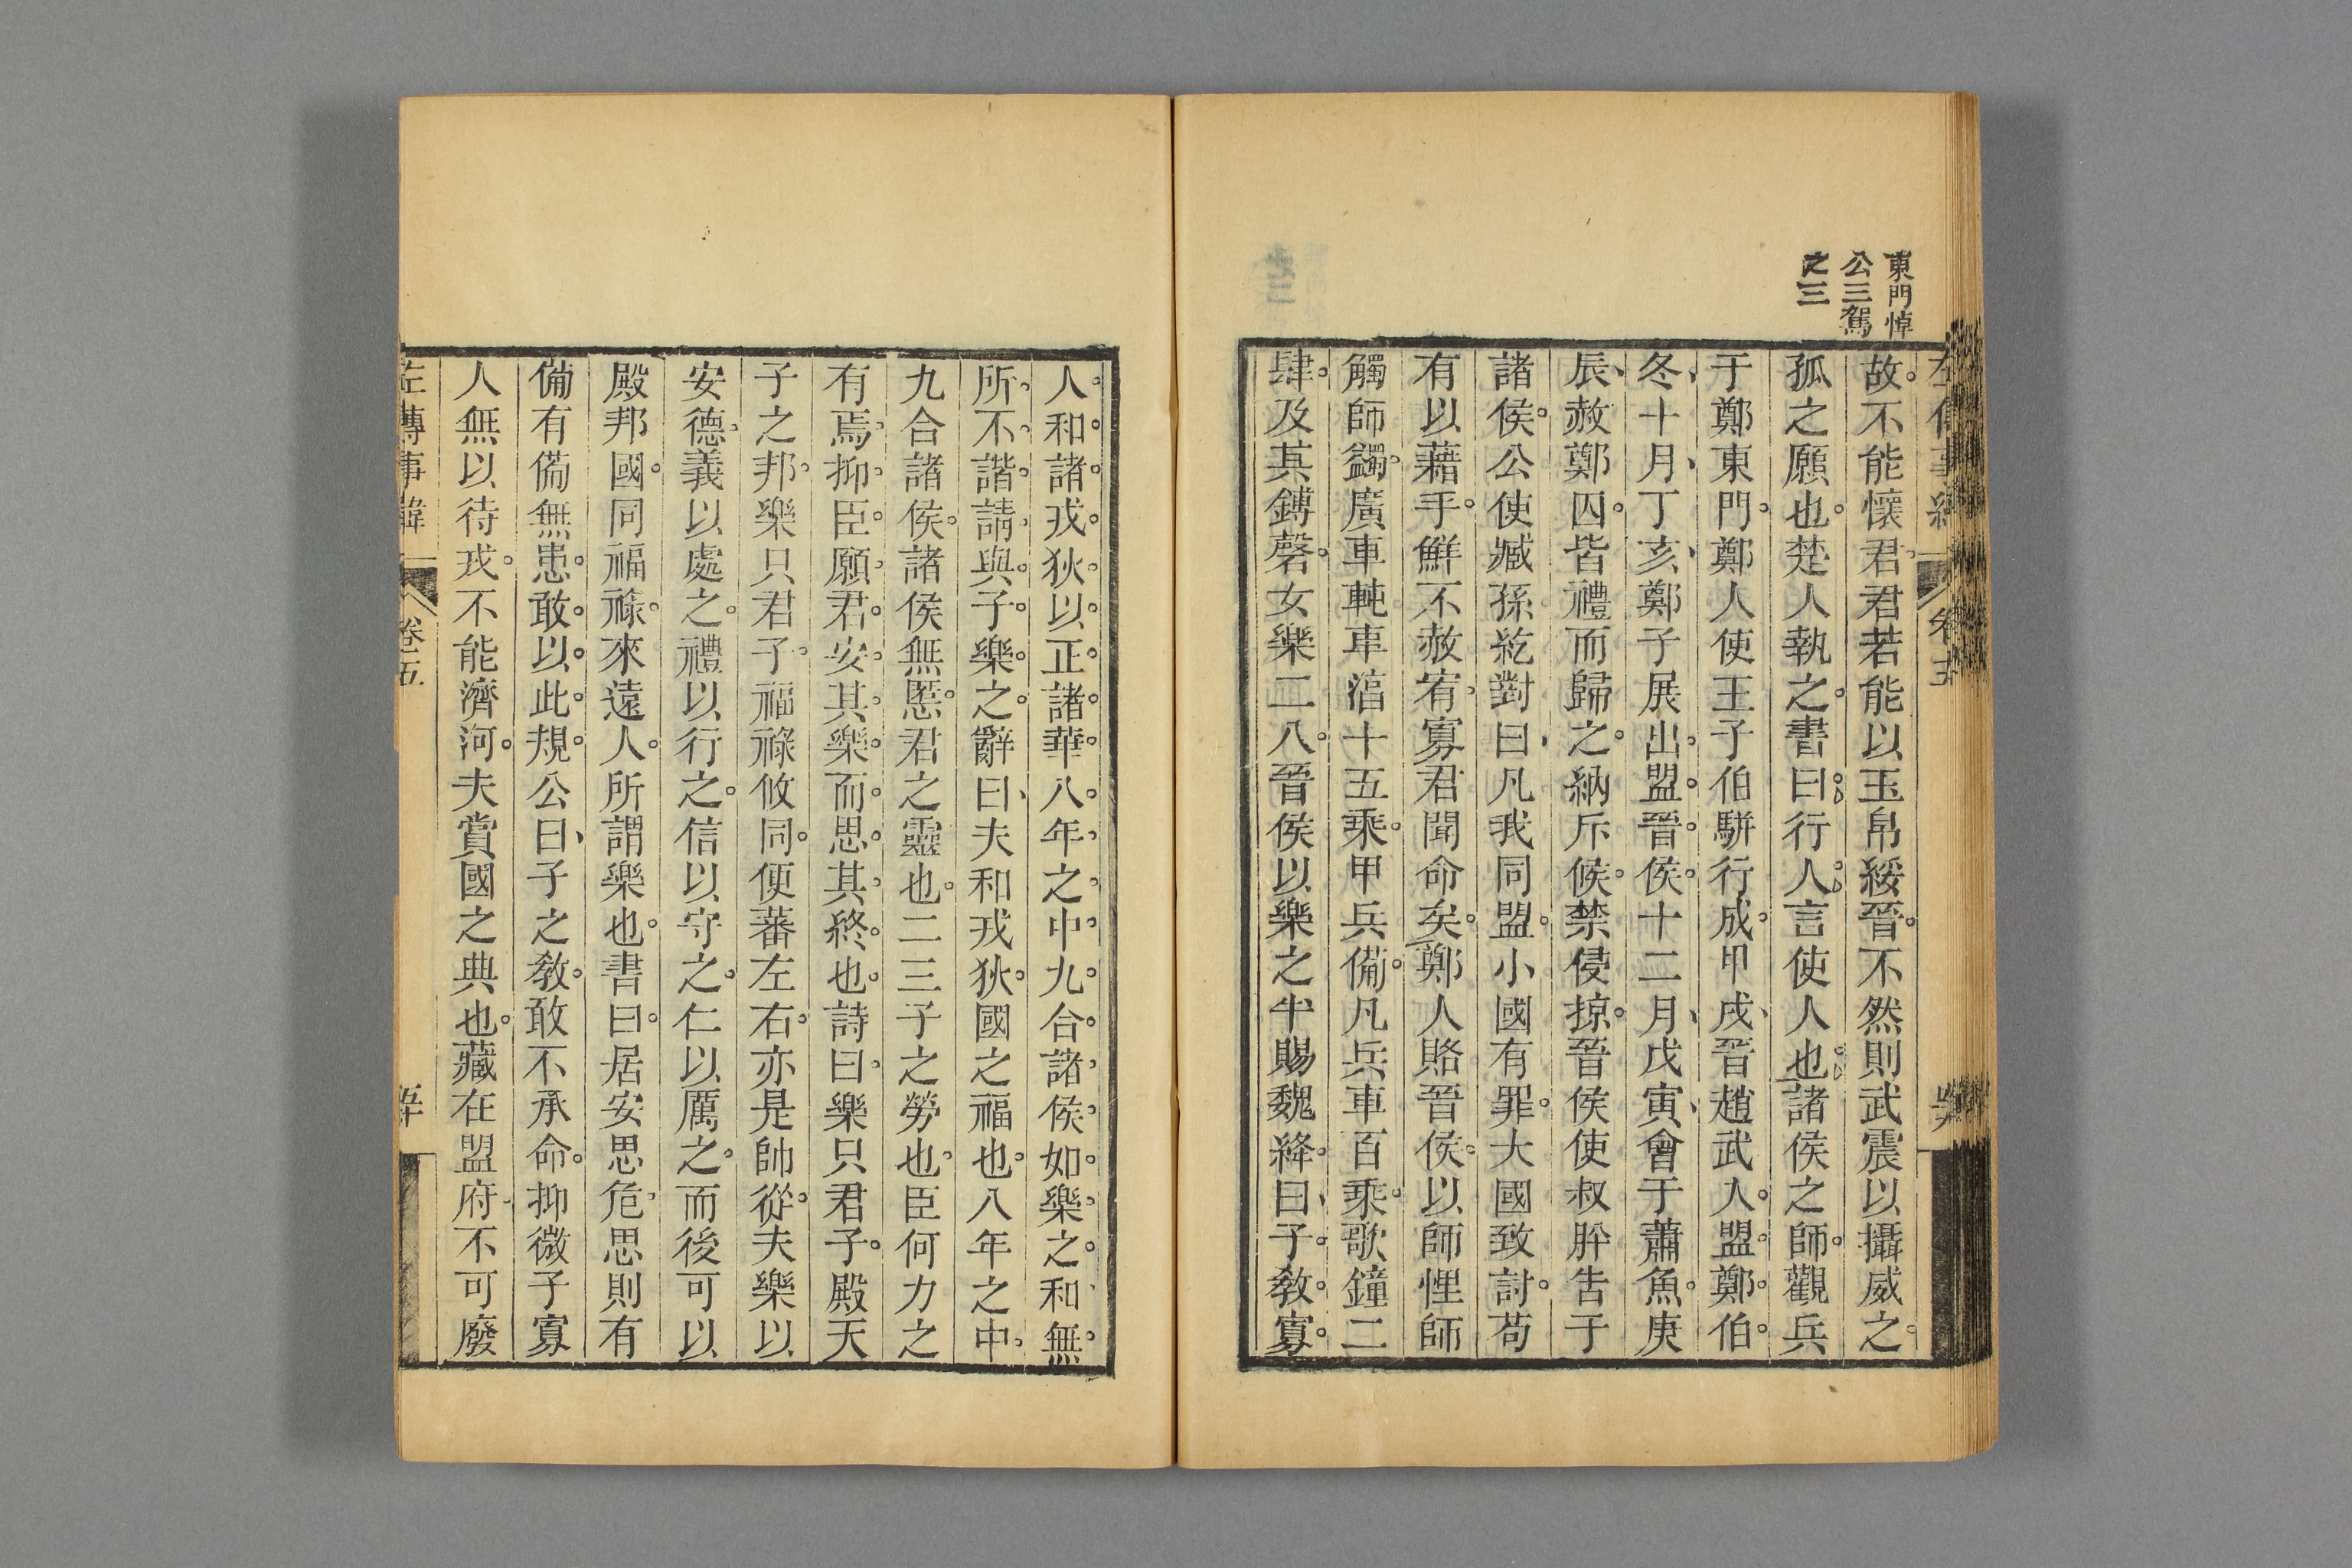 東門悼
公三駕
之三
故不能懷君君若能以玉帛綏晉不然則武震以攝威之
孤之願也楚人執之書曰行人言使人也諸侯之師觀兵
于鄭東門鄭人使王子伯駢行成甲戌晉趙武入盟鄭伯
冬十月丁亥鄭子展出盟晉侯十二月戊寅會于蕭魚庚
辰赦鄭囚皆禮而歸之納斥候禁侵掠晉侯使叔肸告于
諸侯公使臧孫紇對曰凡我同盟小國有罪大國致討苟
有以藉手鮮不赦宥寡君聞命矣鄭人賂晉侯以師悝師
觸師蠲廣車軘車淳十五乘甲兵備凡兵車百乘歌鐘二
肆及其鎛磬女樂二八晉侯以樂之半賜魏絳曰子教寡
人和諸戎狄以正諸華八年之中九合諸侯如樂之和無
所不諧請與子樂之辭曰夫和戎狄國之福也八年之中
九合諸侯諸侯無慝君之靈也二三子之勞也臣何力之
有焉抑臣願君安其樂而思其終也詩曰樂只君子殿天
子之邦樂只君子福祿攸同便蕃左右亦是帥從夫樂以
安德義以處之禮以行之信以守之仁以厲之而後可以
殿邦國同福祿來遠人所謂樂也書曰居安思危思則有
備有備無患敢以此規公曰子之教敢不承命抑微子寡
人無以待戎不能濟河夫賞國之典也藏在盟府不可廢
左傳事緯 卷五